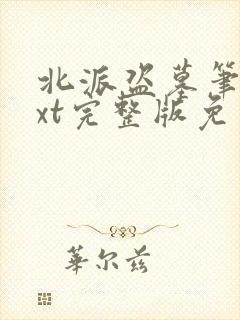 北派盗墓筆
xt完整版免
華尔兹